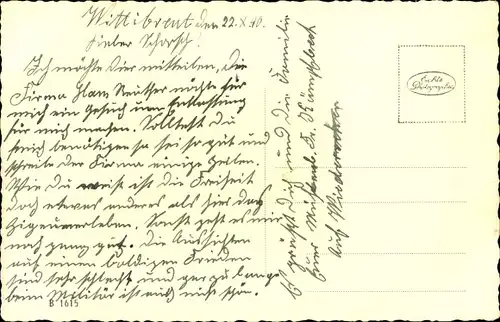 Wittibreut den 22.X.40.
Lieber Schorsch!
Ich möchte Dir mitteilen, die
Firma Hans möchte für
mich ein Gesuch um Entlassung
für mich machen. Solltest Du
mich benötigen so sei so gut und
schreibe der Firma einige Zeilen.
Wie Du weist ist die Freiheit
doch etwas anderes als hier das
Zigeunerleben. Sonst geht es mir
noch ganz gut. Die Aussichten
auf einen baldigen Frieden
sind sehr schlecht und gar zu lange
beim Militär ist auch nicht schön.
Es grüßt Dich und die Familie
Euer
Auf Wiedersehen
Echte
Photographie
B 1615